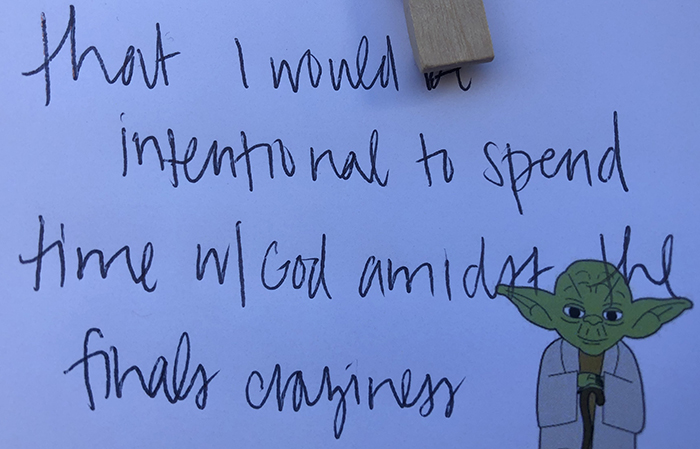 that I would
intentional to spend
time w/ God amidst the
finals craziness